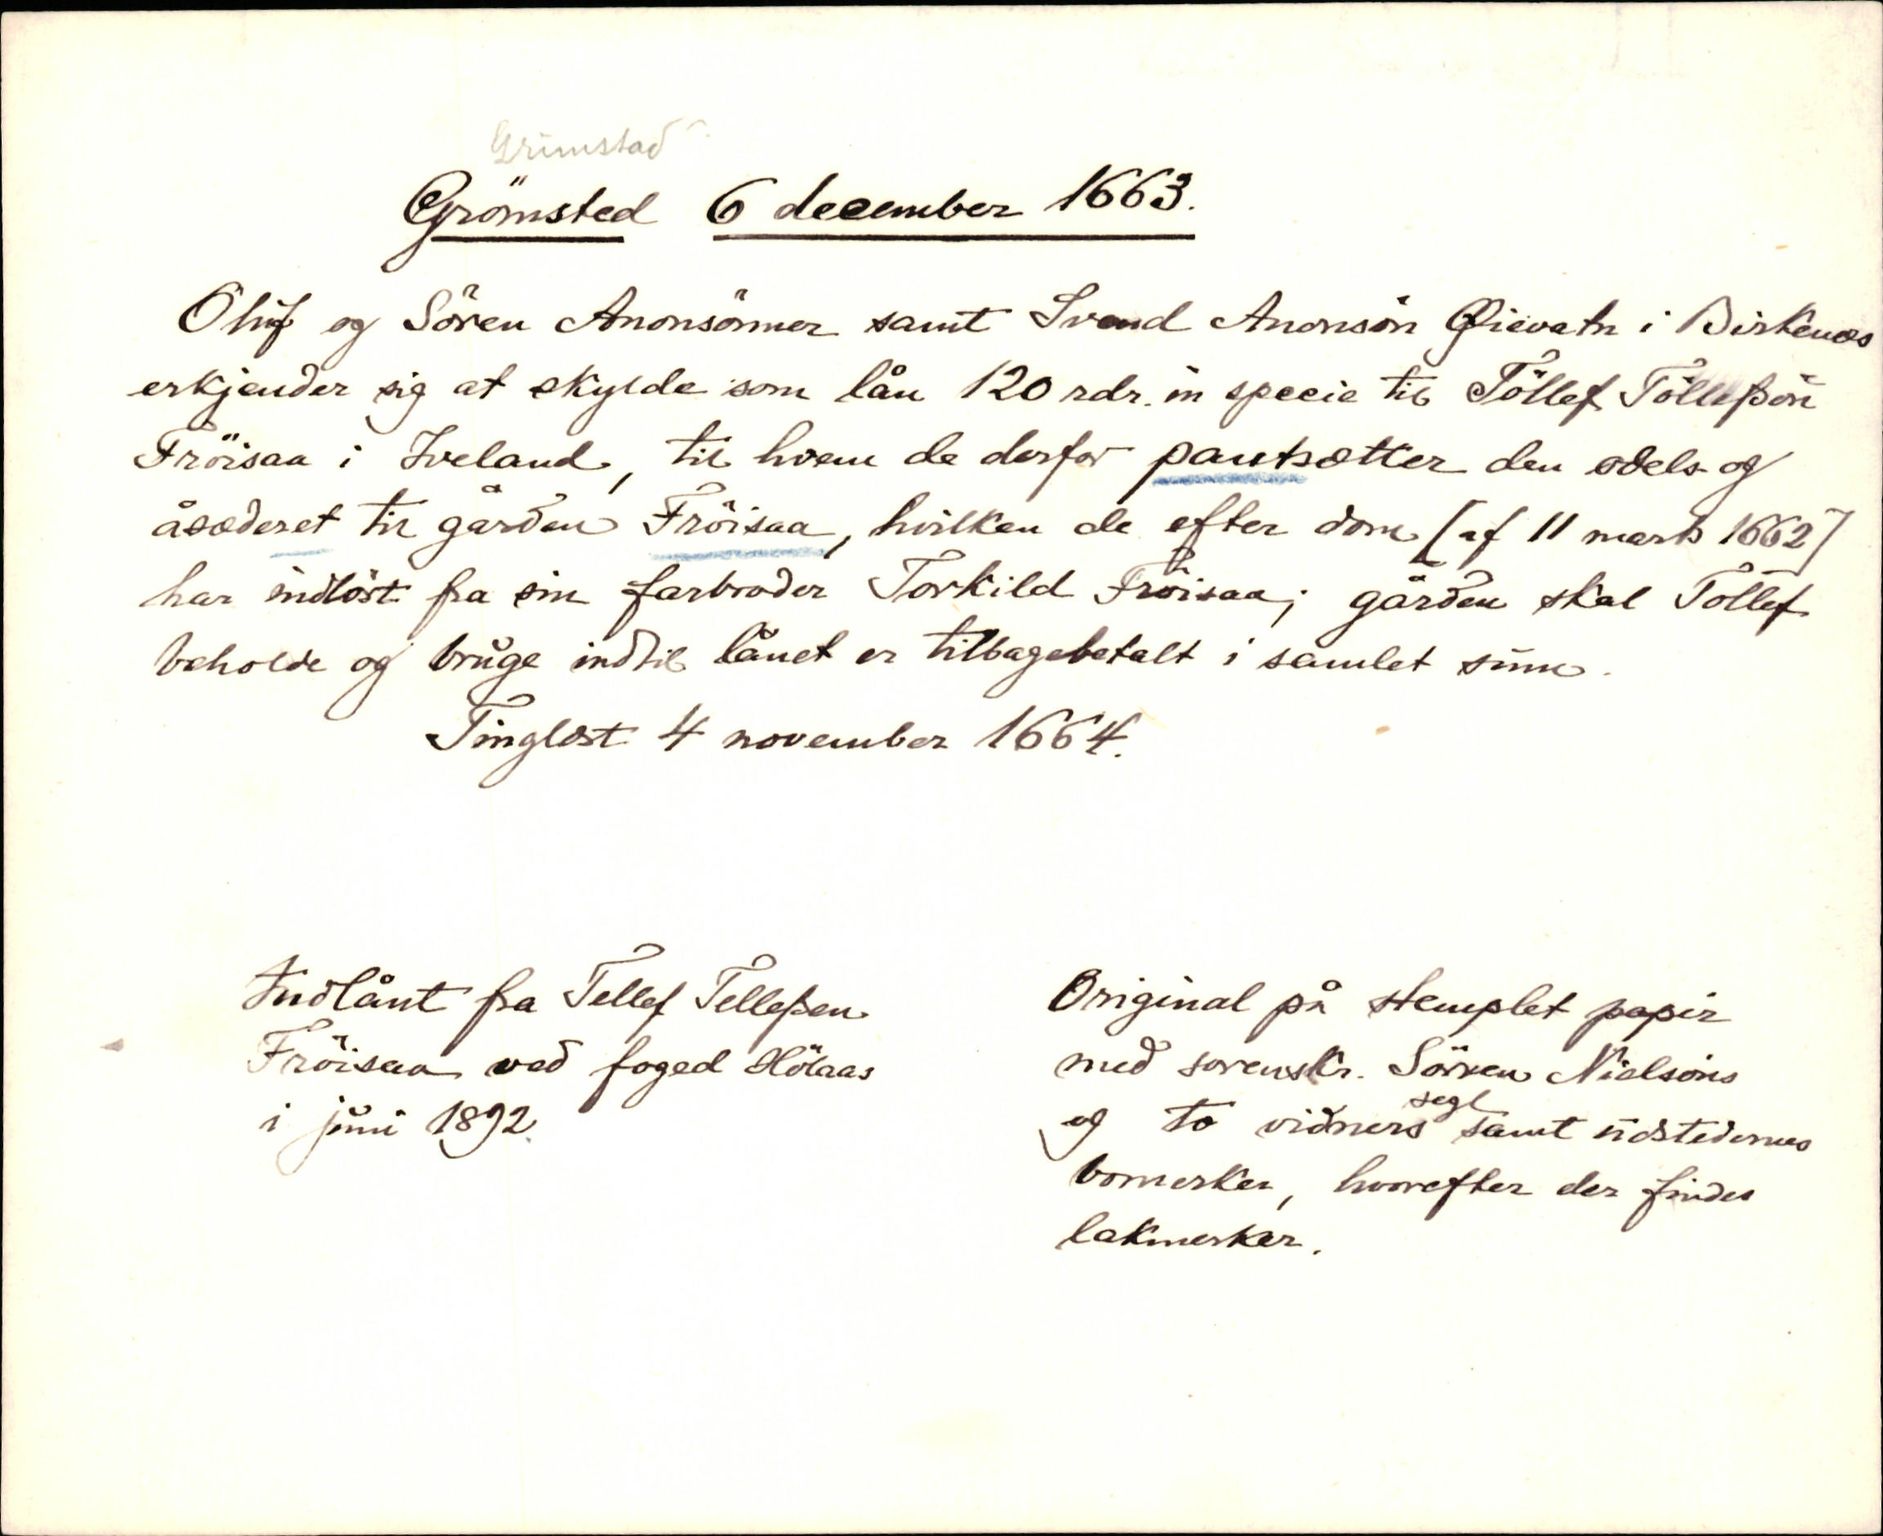 Grimstad
Grömsted 6 december 1663.
Oluf og Sören Anonsönner samt Svend Anonsön Øievatn i Birkenæs
erkjender sig at skylde som lån 120 rdr. in specie til Töllef Töllefsön
Fröisaa i Iveland, til hvem de derfor pantsætter den odels og
åsæderet til gården Fröisaa, hvilken de efter dom [af 11 marts 1662]
har indlöst fra sin farbroder Torkild Fröisaa; gården skal Töllef
beholde og bruge indtil lånet er tilbagebetalt i samlet sum.
Tinglæst 4 november 1664.
Indlånt fra Tellef Tellefsen
Fröisaa ved foged Hölaas
i juni 1892.
Original på stemplet papir
med sorenskr. Sören Nielsöns
og to vidners segl samt udstedernes
bomerker, hvorefter der findes
lakmerker.